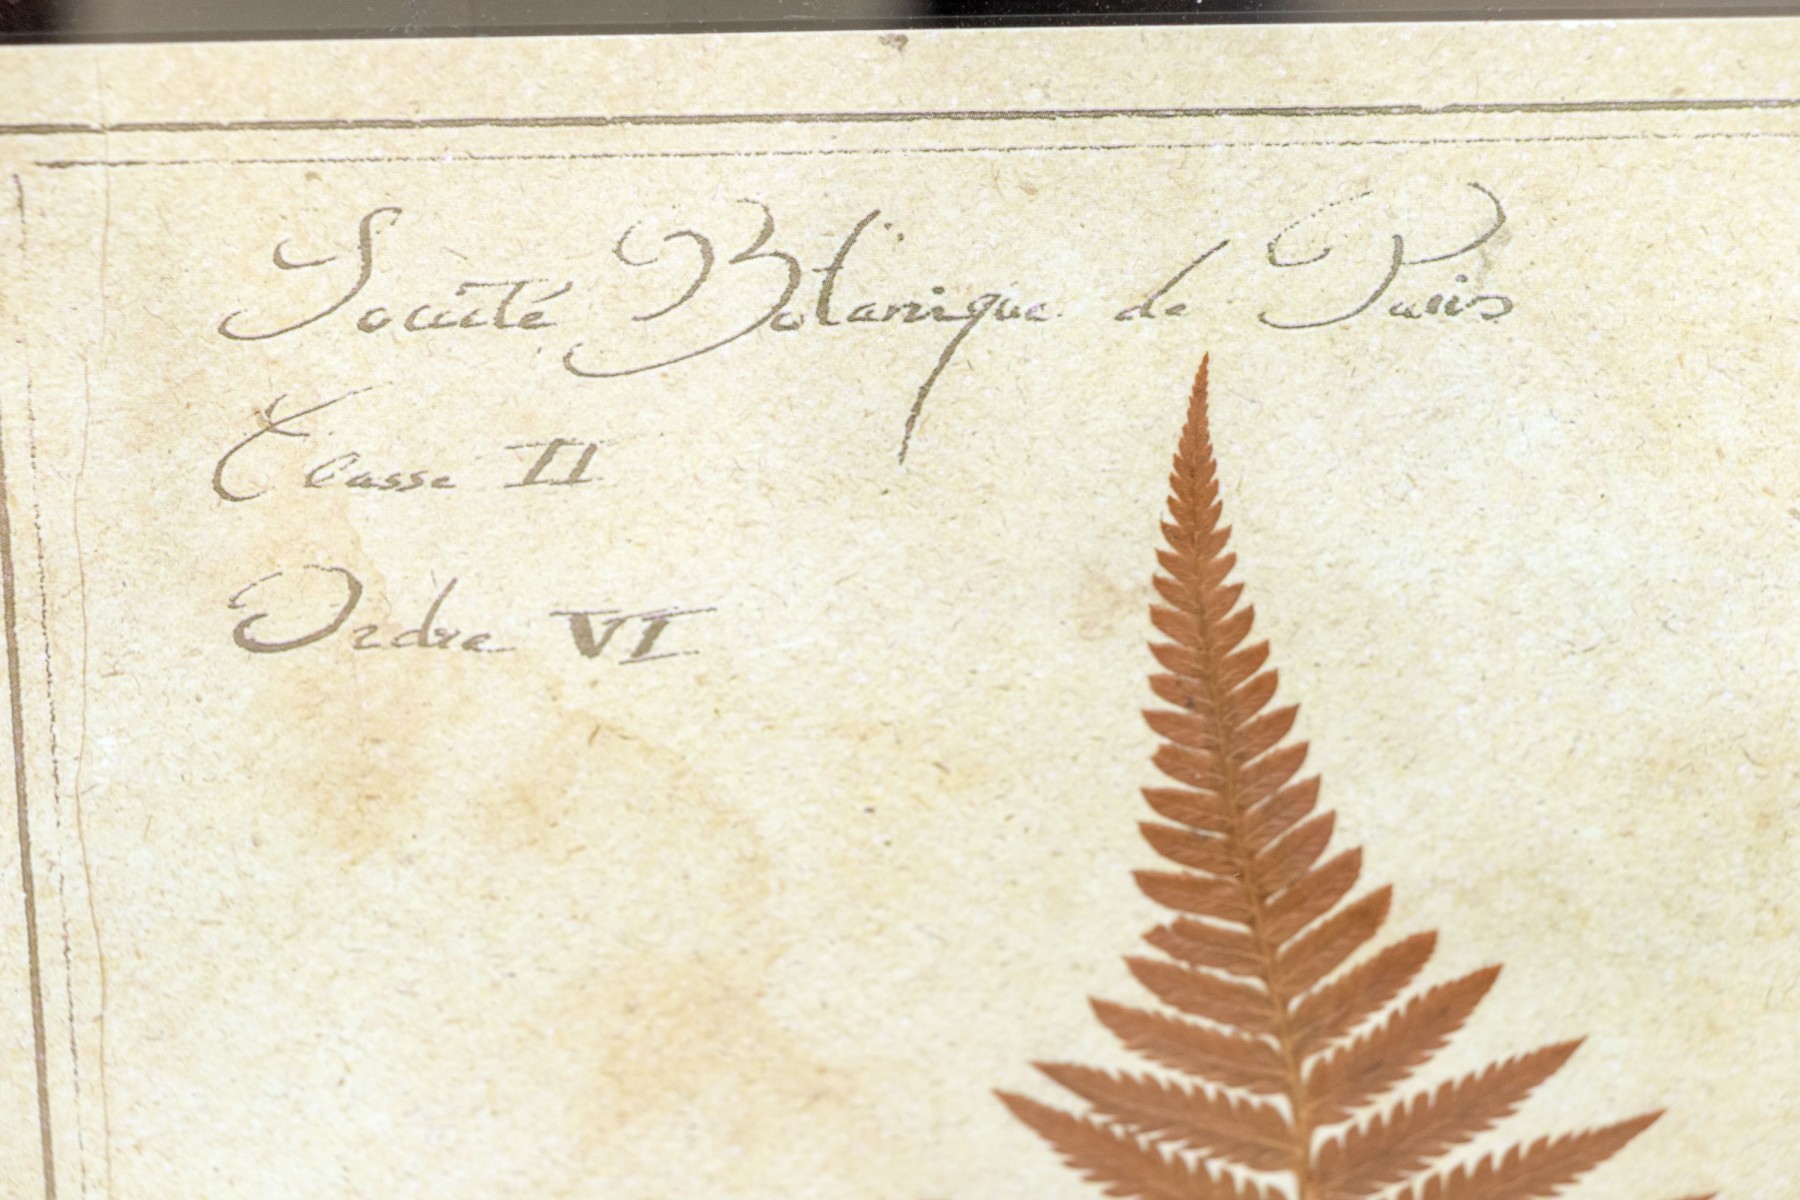 Société Botanique de Paris
Classe II
Ordre VI